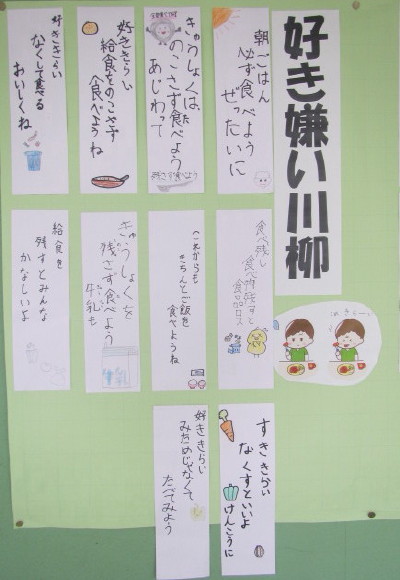 好き嫌い川柳
朝ごはん
必ず食べよう
ぜったいに
きゅうしょくは、
のこさず食べよう
あじわって
残さず食べよう
好ききらい
給食をのこさず
食べようね
好ききらい
なくして食べる
おいしくね
食べ残し
食べ物残すと
食品ロス
これからも
きちんとご飯を
食べようね
きゅうしょくを
残さず食べよう
牛乳も
給食を
残すとみんな
かなしいよ
すききらい
なくすといいよ
けんこうに
好ききらい
みためじゃなくて
たべてみよう